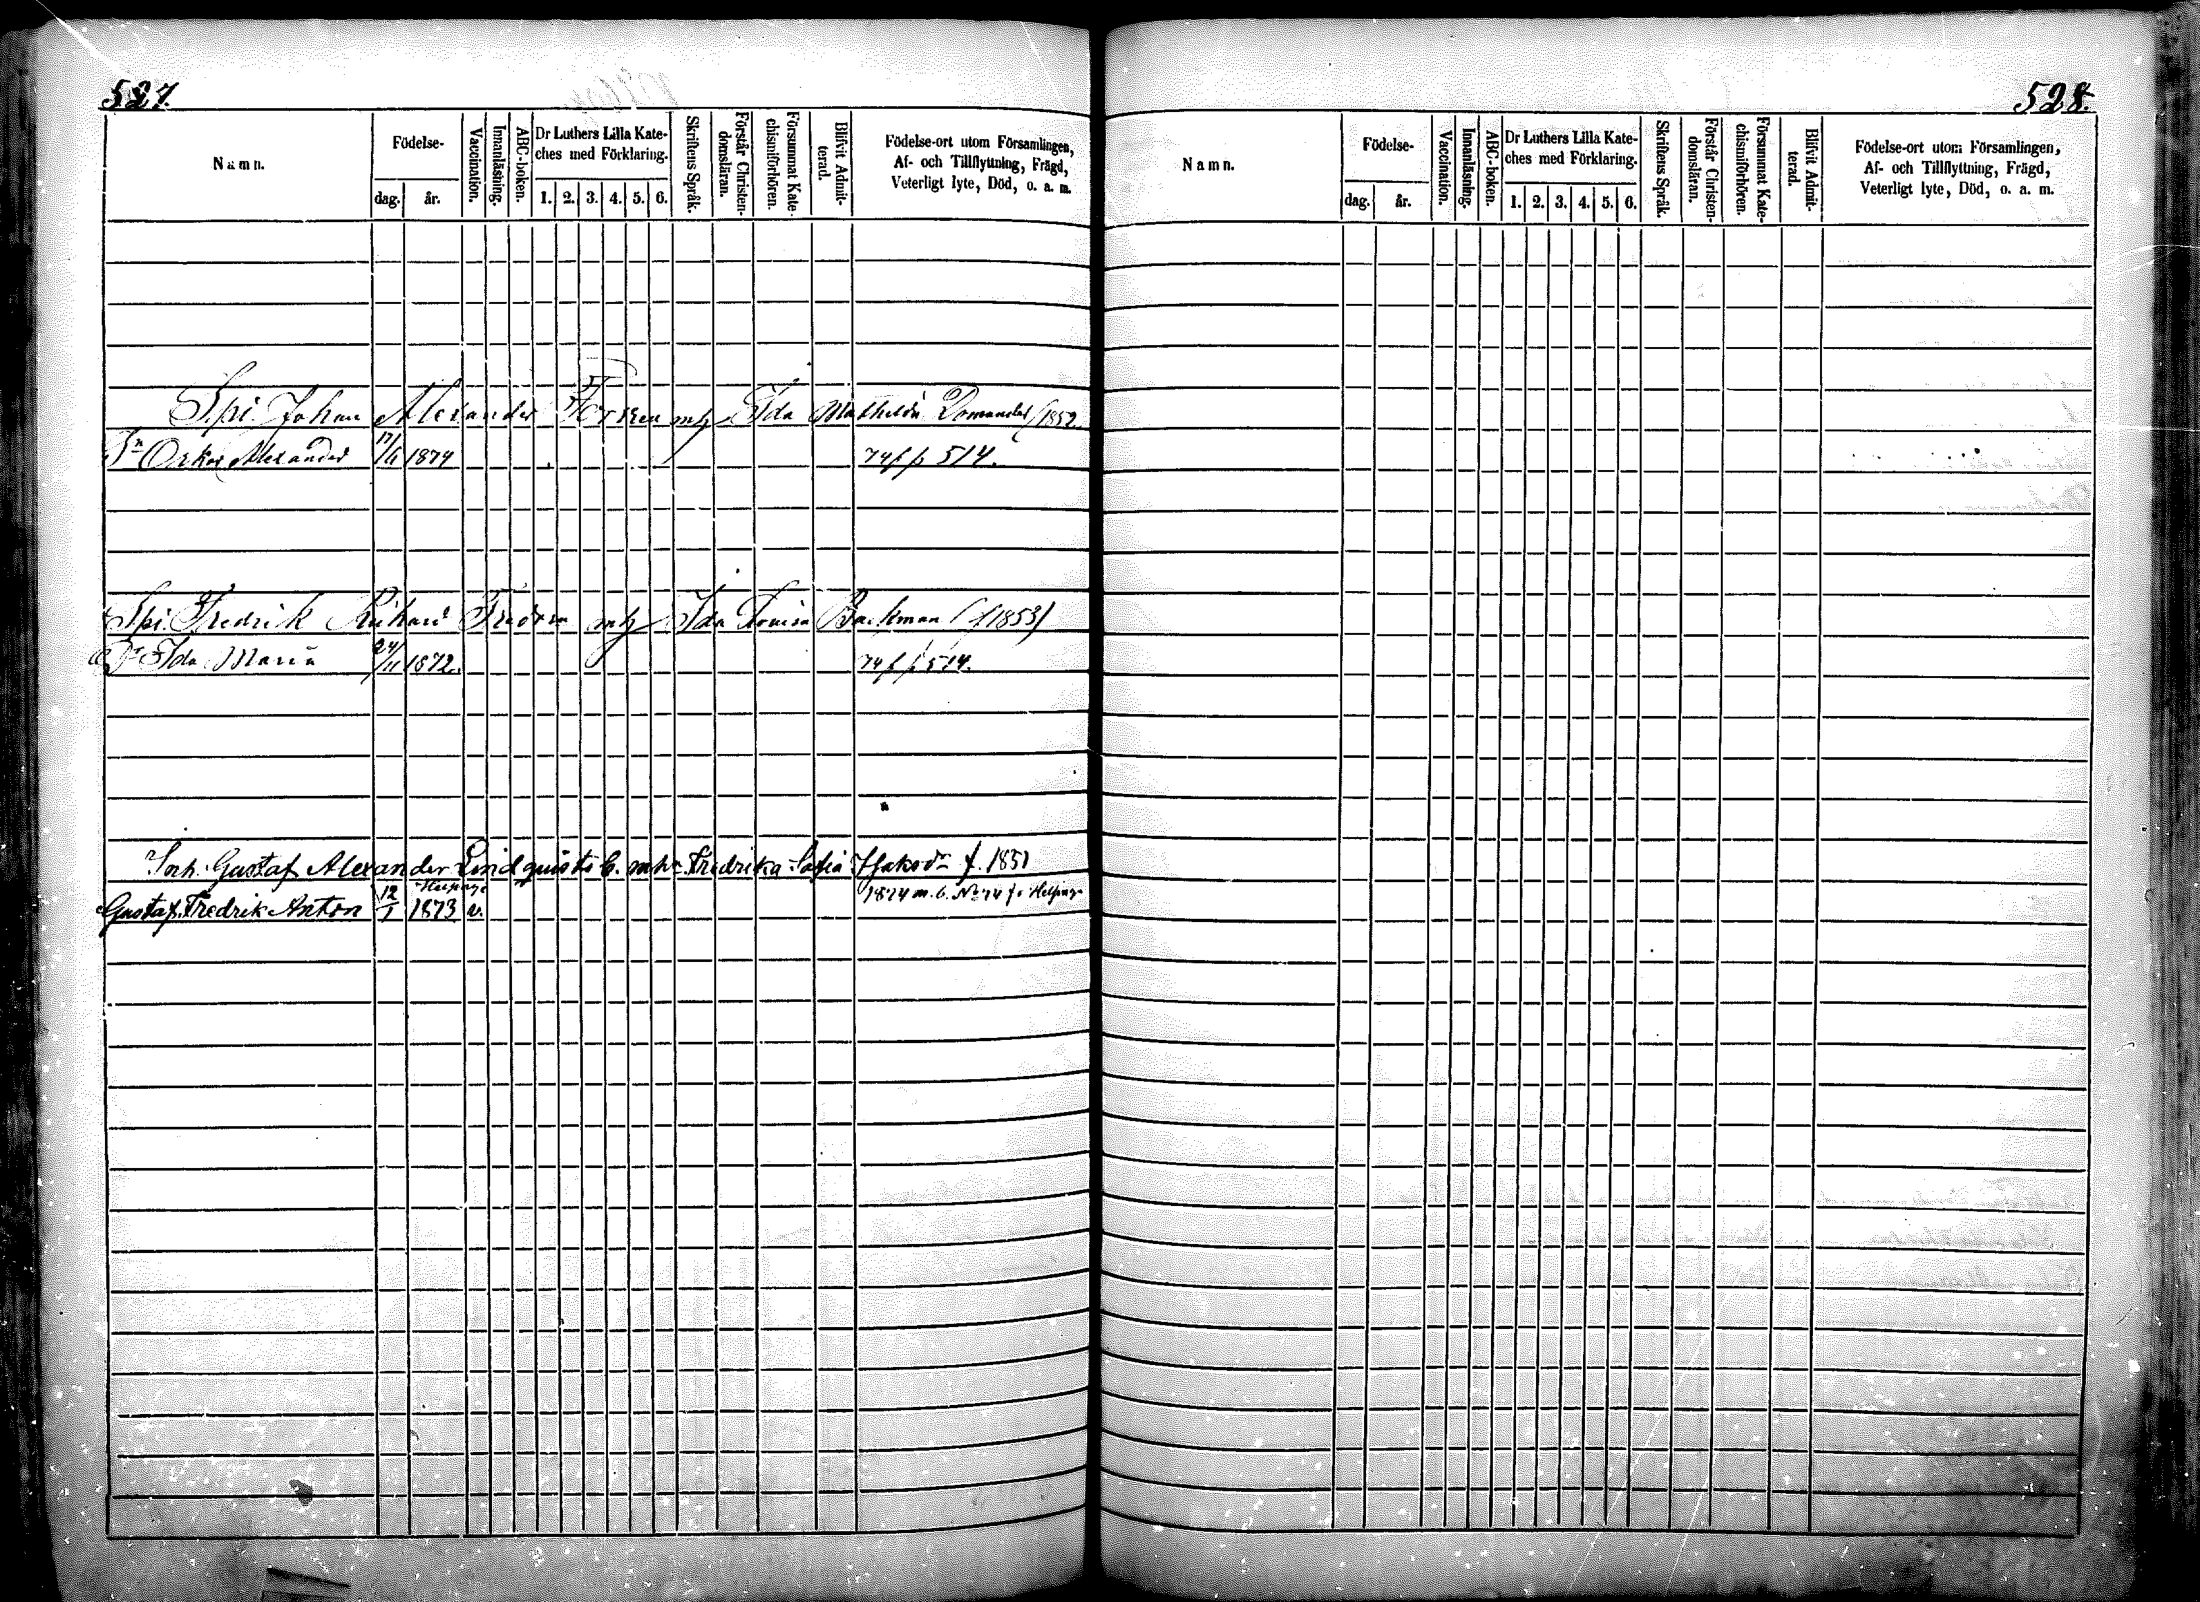 527.
Namn.
Födelse-
dag.
år.
Vaccination.
Innanläsning.
ABC-boken.
Dr Luthers Lilla Kate-
ches med Förklaring.
1. 2. 3. 4. 5. 6.
Skriftens Språk.
Förstår Christen-
domsläran.
Försummat Kate-
chismiförhören.
Blifvit Admit-
terad.
Födelse-ort utom Församlingen,
Af- och Tillflyttning, Frägd,
Veterligt lyte, Död, o. a. m.
Spi. Johan Alexander mh Ida Mathilda 1852
Sn Oskar Alexander 17/11 1874 74 f p 514.
Spi. Fredrik Rikard mh Ida Lovisa Backman (f 1853)
Dr Ida Maria 24/11 1872. 74 f p 514.
Gustaf Alexander Lindquists b. mhu Fredrika Sofia f. 1851
Helsinge 1874 m. b. No 74 fr Helsinge
Gustaf Fredrik Anton 12/1 1873 v.
528.
Namn.
Födelse-
dag.
år.
Vaccination.
Innanläsning.
ABC-boken.
Dr Luthers Lilla Kate-
ches med Förklaring.
1. 2. 3. 4. 5. 6.
Skriftens Språk.
Förstår Christen-
domsläran.
Försummat Kate-
chismiförhören.
Blifvit Admit-
terad.
Födelse-ort utom Församlingen,
Af- och Tillflyttning, Frägd,
Veterligt lyte, Död, o. a. m.